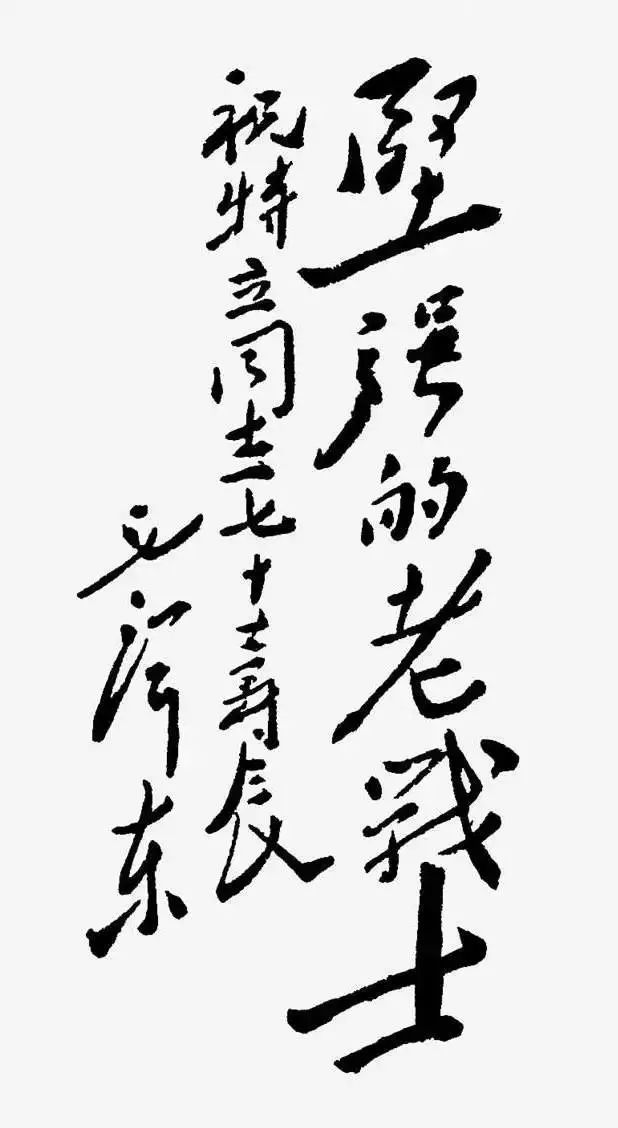 堅强的老戰士
祝特立同志七十壽辰
毛澤东